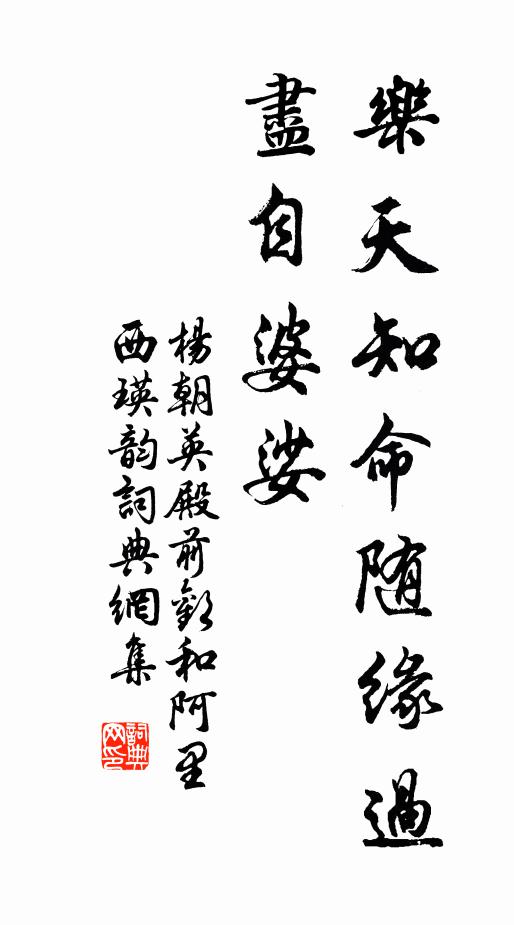 樂天知命隨緣過
盡自婆娑
楊朝英殿前歡和阿里
西瑛韵詞典網集
詞典網印